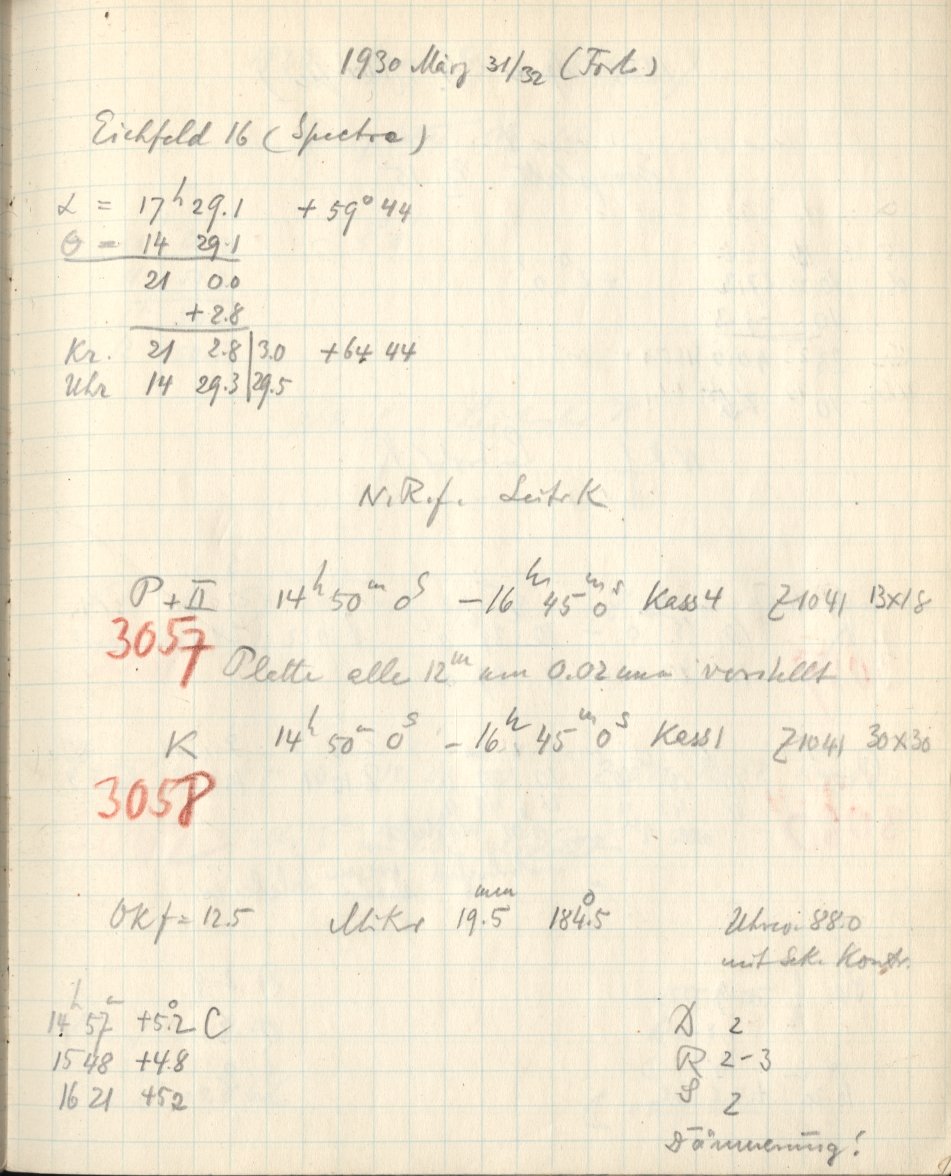 1930 März 31/32 (Forts)
Eichfeld 16 (Spectra)
α = 17ʰ 29.1 + 59° 44
θ = 14 29.1
21 0.0
+ 2.8
Kr. 21 2.8 | 3.0 + 64 44
Uhr 14 29.3 | 29.5
N.R.f. Leitr. K
P + II 14ʰ 50ᵐ 0ˢ – 16ʰ 45ᵐ 0ˢ Kass 4 Z1041 13x18
3057
Platte alle 12ᵐ um 0.02 mm verstellt
K 14ʰ 50ᵐ 0ˢ – 16ʰ 45ᵐ 0ˢ Kass 1 Z1041 30x30
3058
OKf = 12.5 Mikr 19.5ᵐᵐ 184.5° Uhrw. 88.0
mit Sek. Kontr.
14ʰ 57ᵐ +5.°2 C D 2
15 48 +4.8 R 2-3
16 21 +52 S 2
Dämmerung!